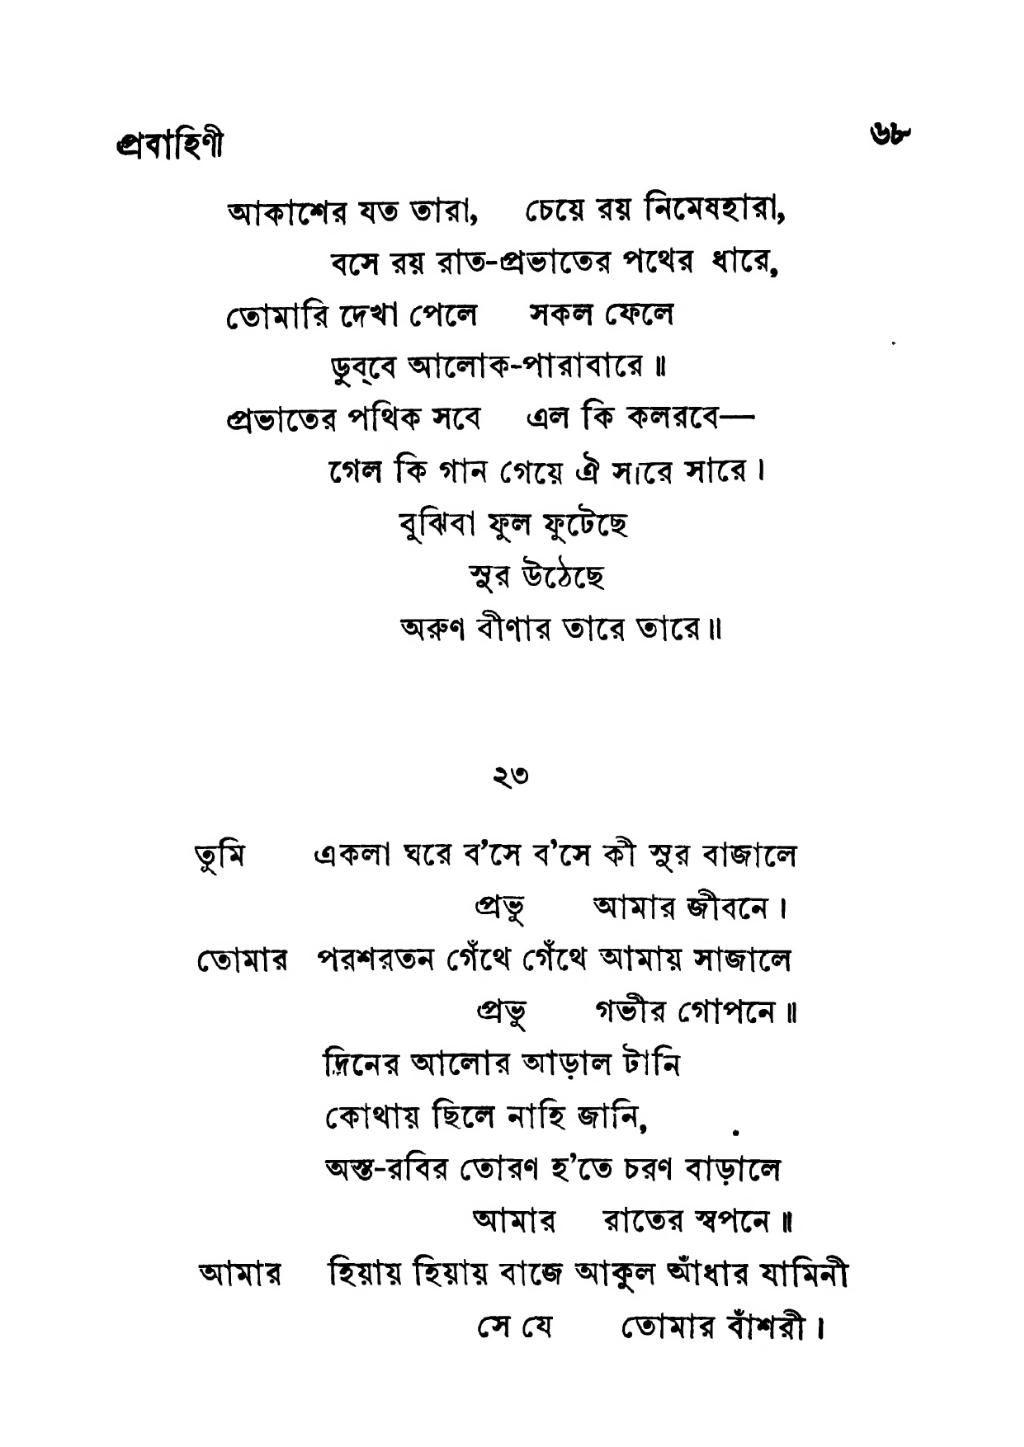 প্রবাহিণী ৬৮
আকাশের যত তারা, চেয়ে রয় নিমেষহারা,
বসে রয় রাত-প্রভাতের পথের ধারে,
তোমারি দেখা পেলে সকল ফেলে
ডুব্‌বে আলোক-পারাবারে॥
প্রভাতের পথিক সবে এল কি কলরবে—
গেল কি গান গেয়ে ঐ সারে সারে।
বুঝিবা ফুল ফুটেছে
সুর উঠেছে
অরুণ বীণার তারে তারে॥
২৩
তুমি একলা ঘরে ব’সে ব’সে কী সুর বাজালে
প্রভু আমার জীবনে।
তোমার পরশরতন গেঁথে গেঁথে আমায় সাজালে
প্রভু গভীর গোপনে॥
দিনের আলোর আড়াল টানি
কোথায় ছিলে নাহি জানি,
অস্ত-রবির তোরণ হ’তে চরণ বাড়ালে
আমার রাতের স্বপনে॥
আমার হিয়ায় হিয়ায় বাজে আকুল আঁধার যামিনী
সে যে তোমার বাঁশরী।